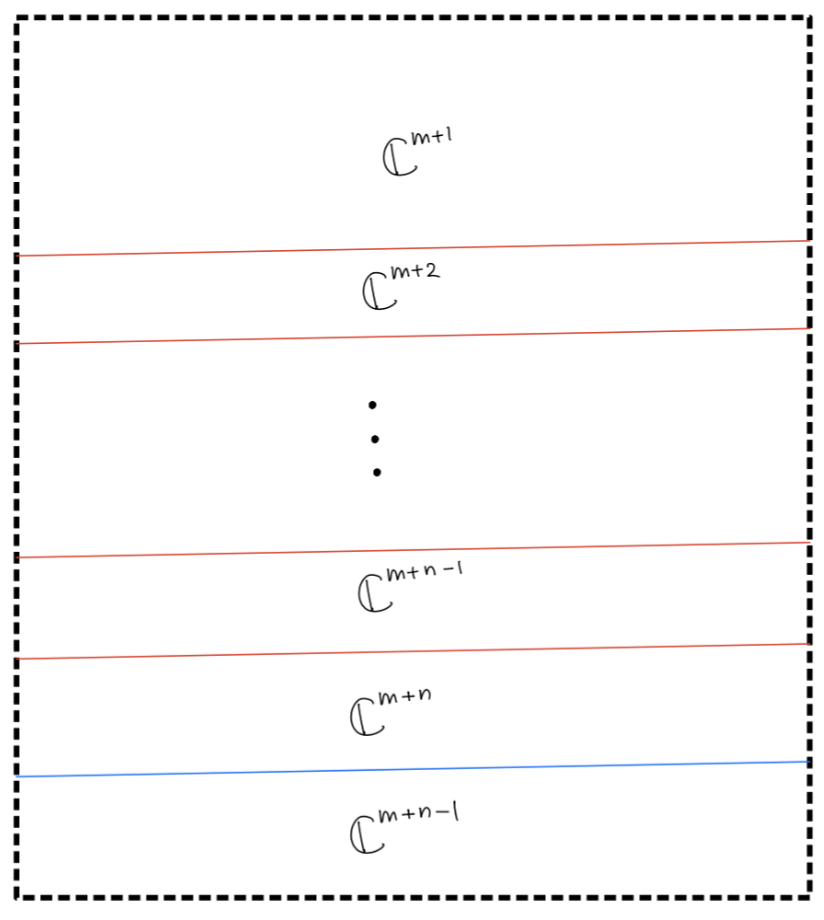 ℂ^{m+1}
ℂ^{m+2}
⋮
ℂ^{m+n-1}
ℂ^{m+n}
ℂ^{m+n-1}